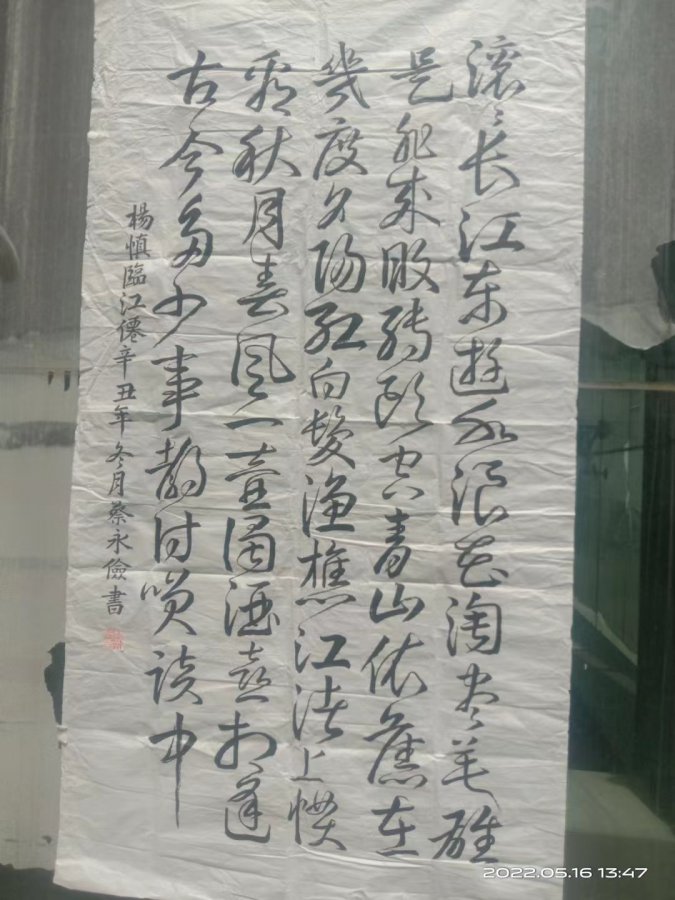 滚々长江东逝水浪花淘尽英雄
是非成败转头空青山依舊在
幾度夕阳红白髮渔樵江渚上惯
看秋月春风一壺浊酒喜相逢
古今多少事都付笑谈中
楊慎臨江僊辛丑年冬月蔡永儉書
2022.05.16 13:47